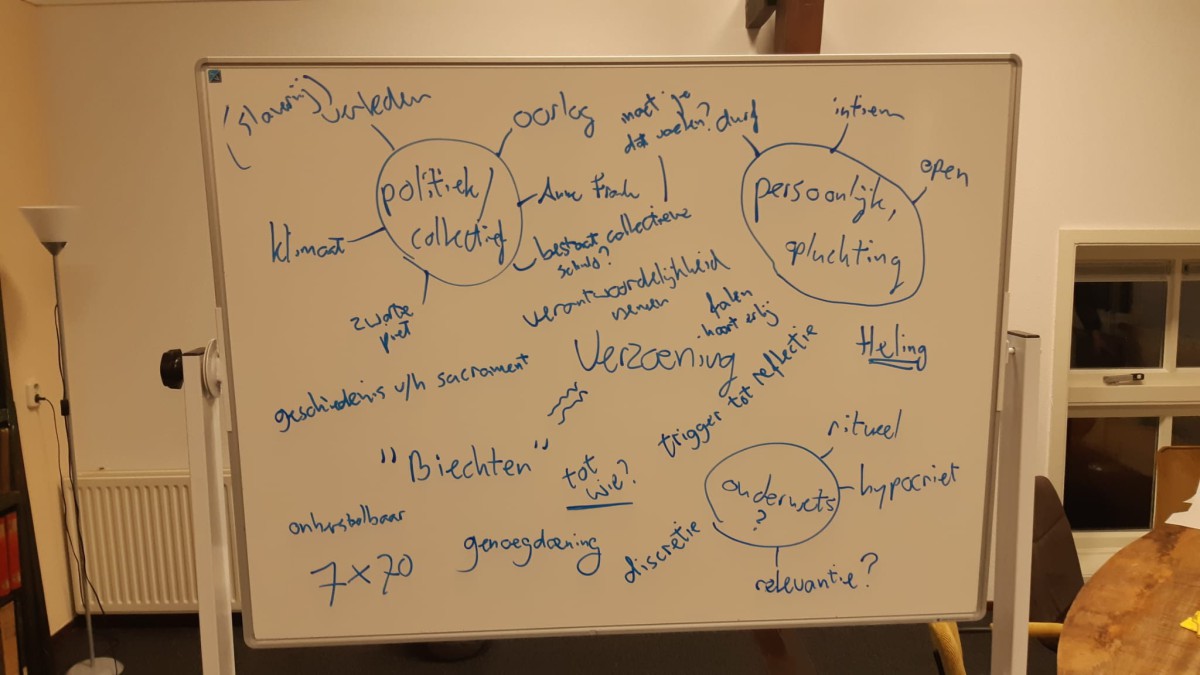 (slavernij)
verleden
oorlog
moet je
dat voelen?
durf
intiem
open
politiek /
collectief
Anne Frank
persoonlijk,
opluchting
klimaat
bestaat collectieve
schuld?
zwarte
piet
verantwoordelijkheid
nemen
falen
hoort erbij
Verzoening
Heling
geschiedenis v/h sacrament
trigger tot reflectie
"Biechten"
tot
wie?
ritueel
ouderwets
?
hypocriet
onherstelbaar
genoegdoening
discretie
7x70
relevantie?